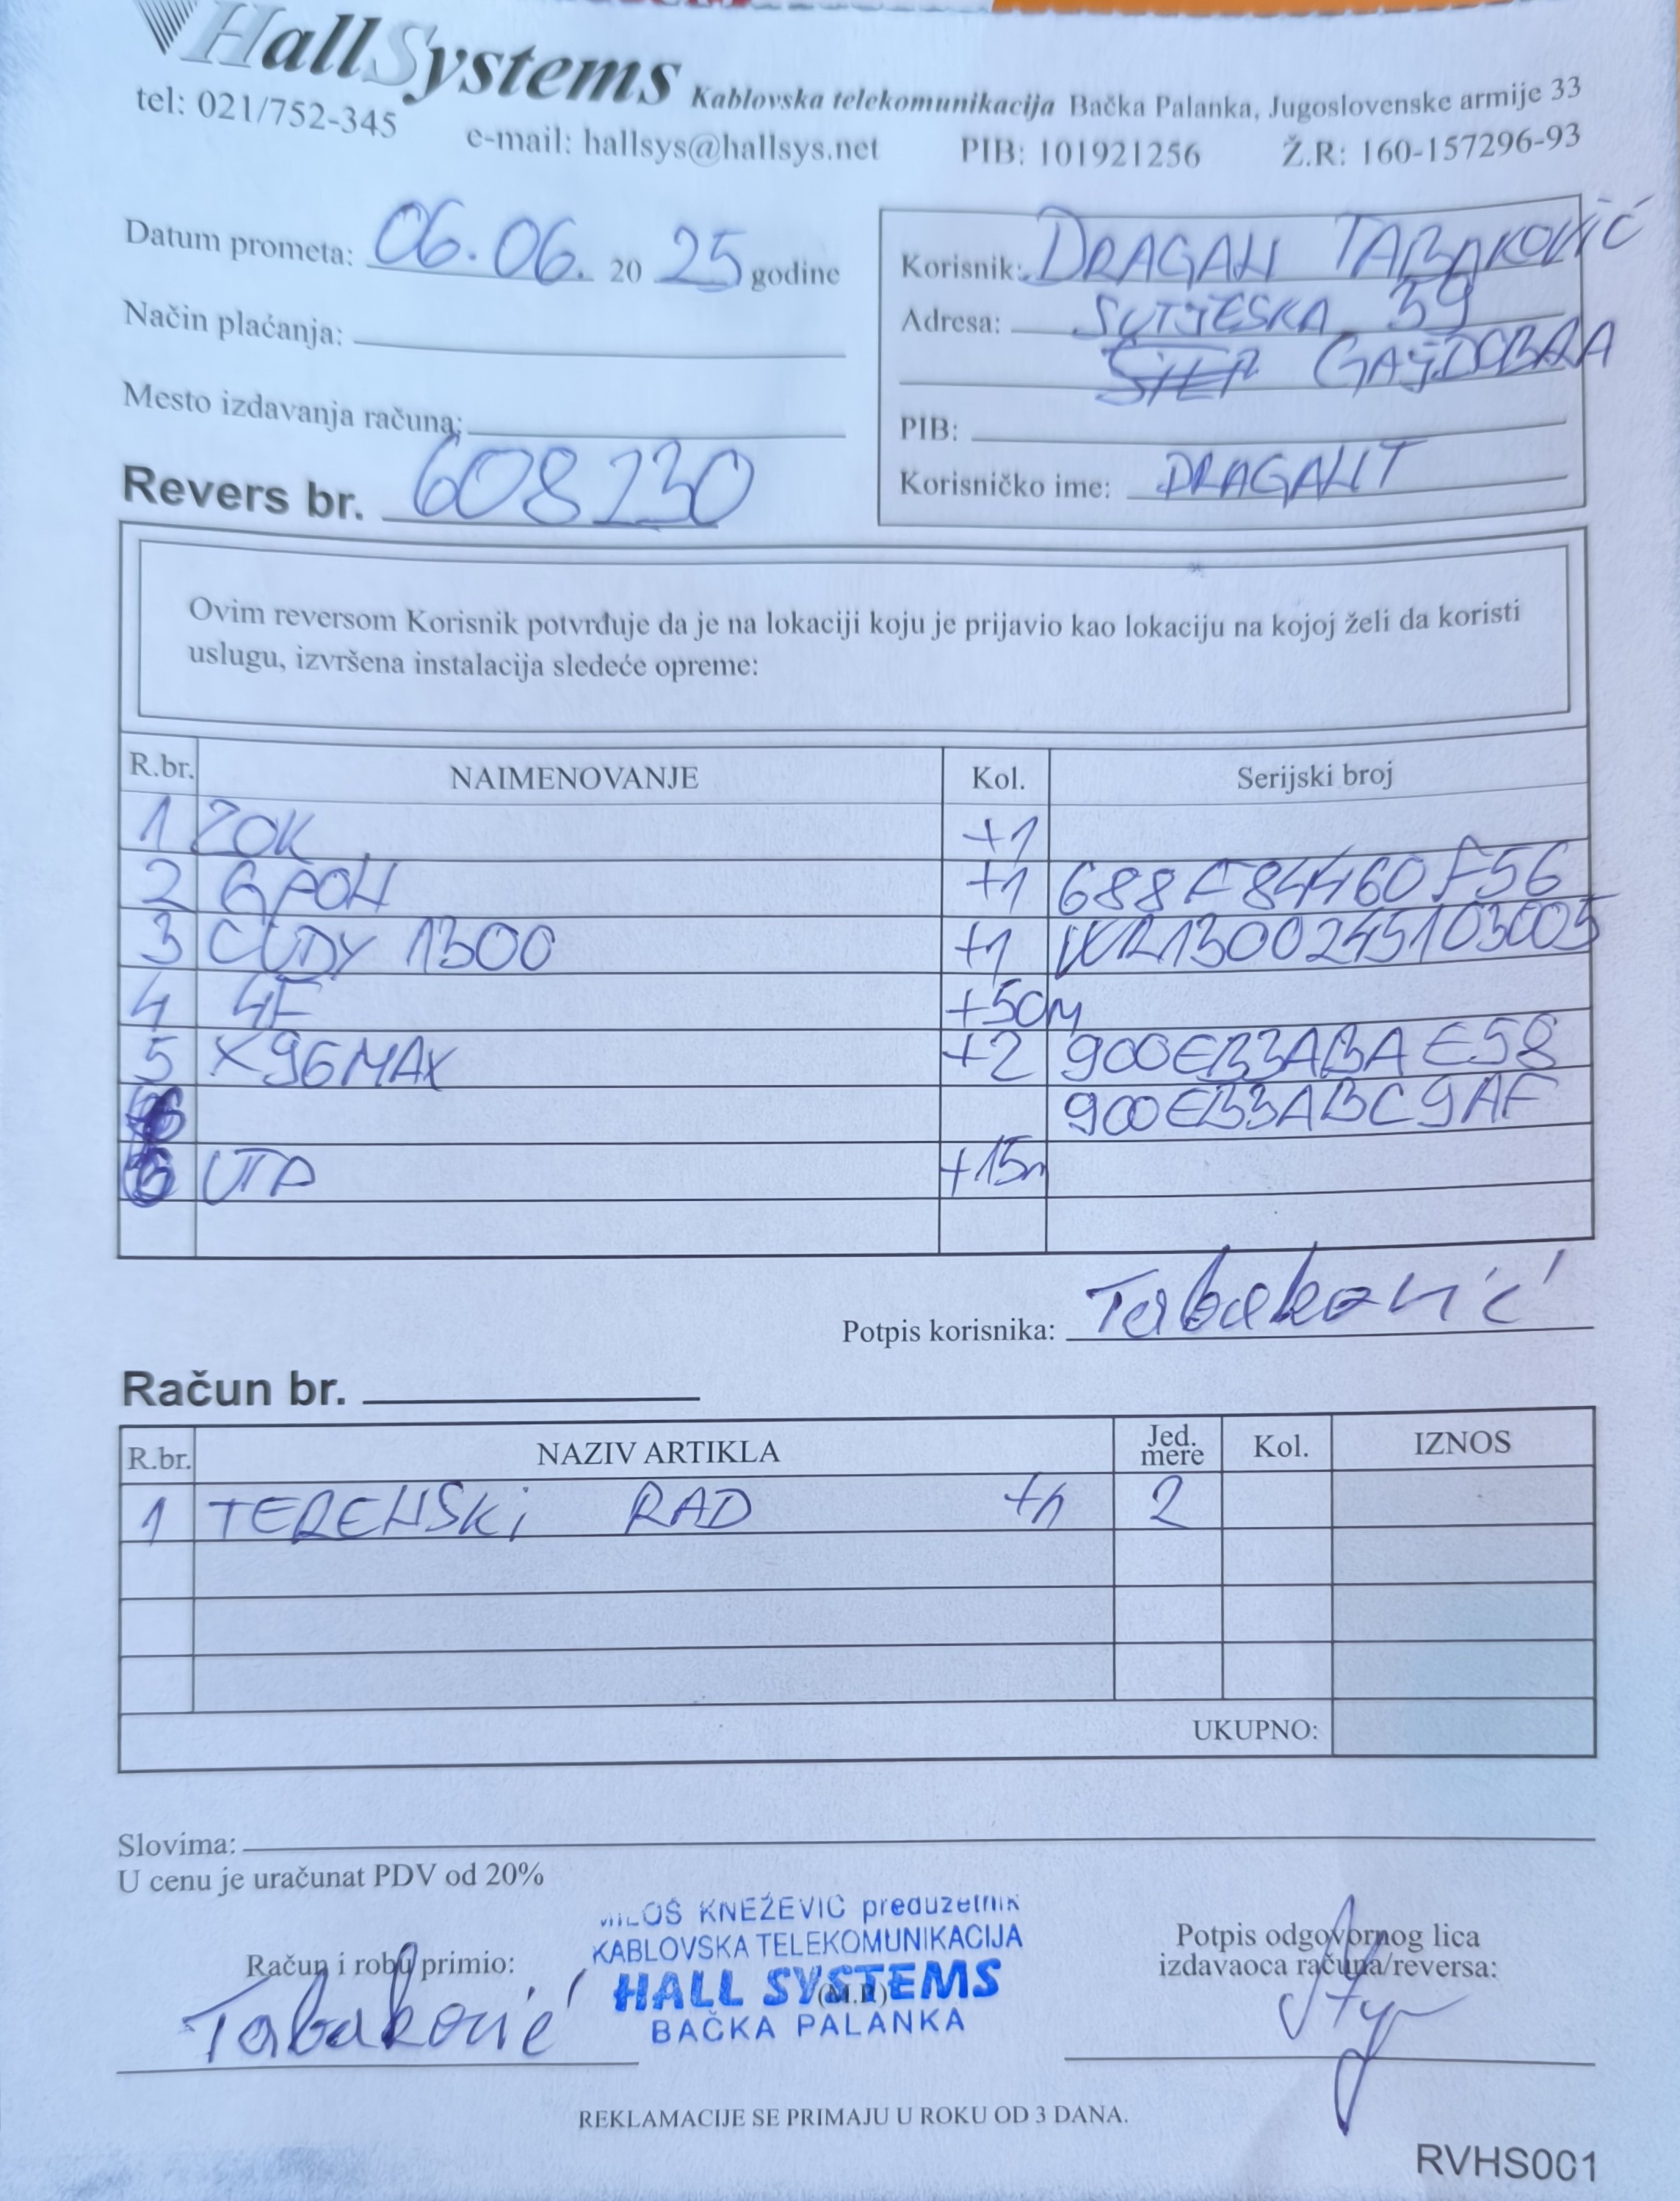 HallSystems Kablovska telekomunikacija Bačka Palanka, Jugoslovenske armije 33
tel: 021/752-345 e-mail: hallsys@hallsys.net PIB: 101921256 Ž.R: 160-157296-93
Datum prometa: 06.06. 20 25 godine
Način plaćanja:
Mesto izdavanja računa:
Revers br. 608230
Korisnik: DRAGAN TABAKOVIĆ
Adresa: SUTJESKA 39
GAJDOBRA
PIB:
Korisničko ime: DRAGANT
Ovim reversom Korisnik potvrđuje da je na lokaciji koju je prijavio kao lokaciju na kojoj želi da koristi
uslugu, izvršena instalacija sledeće opreme:
R.br. NAIMENOVANJE Kol. Serijski broj
1 ZOK +1
2 GPON +1 688F84460F56
3 CUDY 1300 +1 WR1300245103005
4 4F +50m
5 X96MAX +2 900EB3ABAE58
900EB3ABC9AF
6 UTP +15m
Potpis korisnika: Tabaković
Račun br.
R.br. NAZIV ARTIKLA Jed. mere Kol. IZNOS
1 TERENSKI RAD +h 2
UKUPNO:
Slovima:
U cenu je uračunat PDV od 20%
MILOŠ KNEŽEVIĆ preduzetnik
KABLOVSKA TELEKOMUNIKACIJA
HALL SYSTEMS
(M.P.)
BAČKA PALANKA
Račun i robu primio:
Tabaković
Potpis odgovornog lica
izdavaoca računa/reversa:
REKLAMACIJE SE PRIMAJU U ROKU OD 3 DANA.
RVHS001